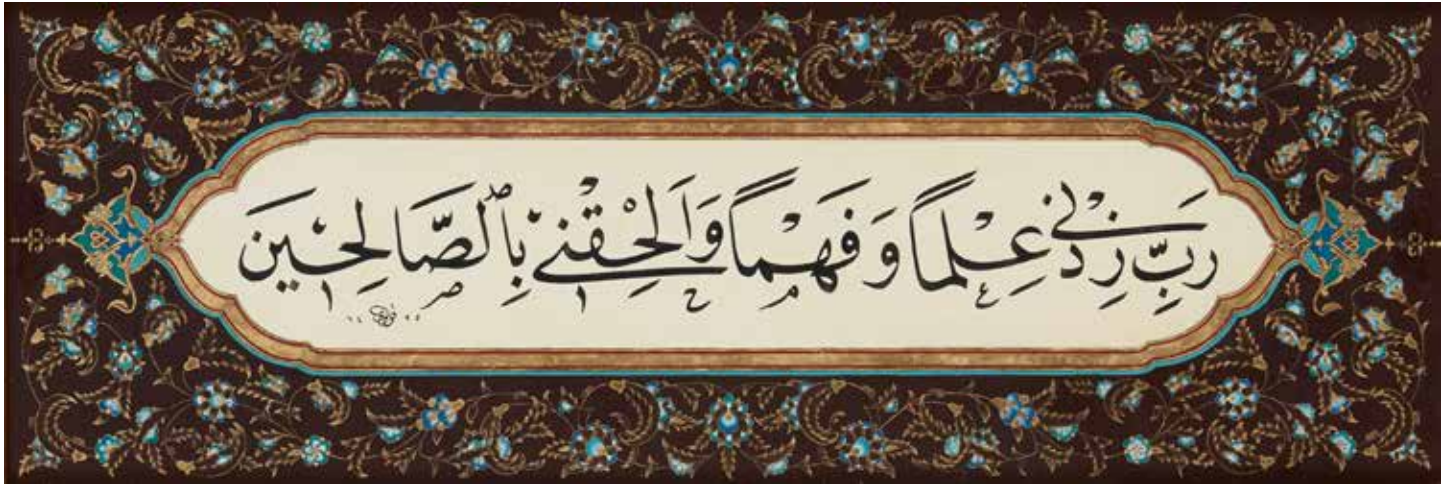 رَبِّ زِدْنِي عِلْمًا وَفَهْمًا وَأَلْحِقْنِي بِٱلصَّالِحِينَ